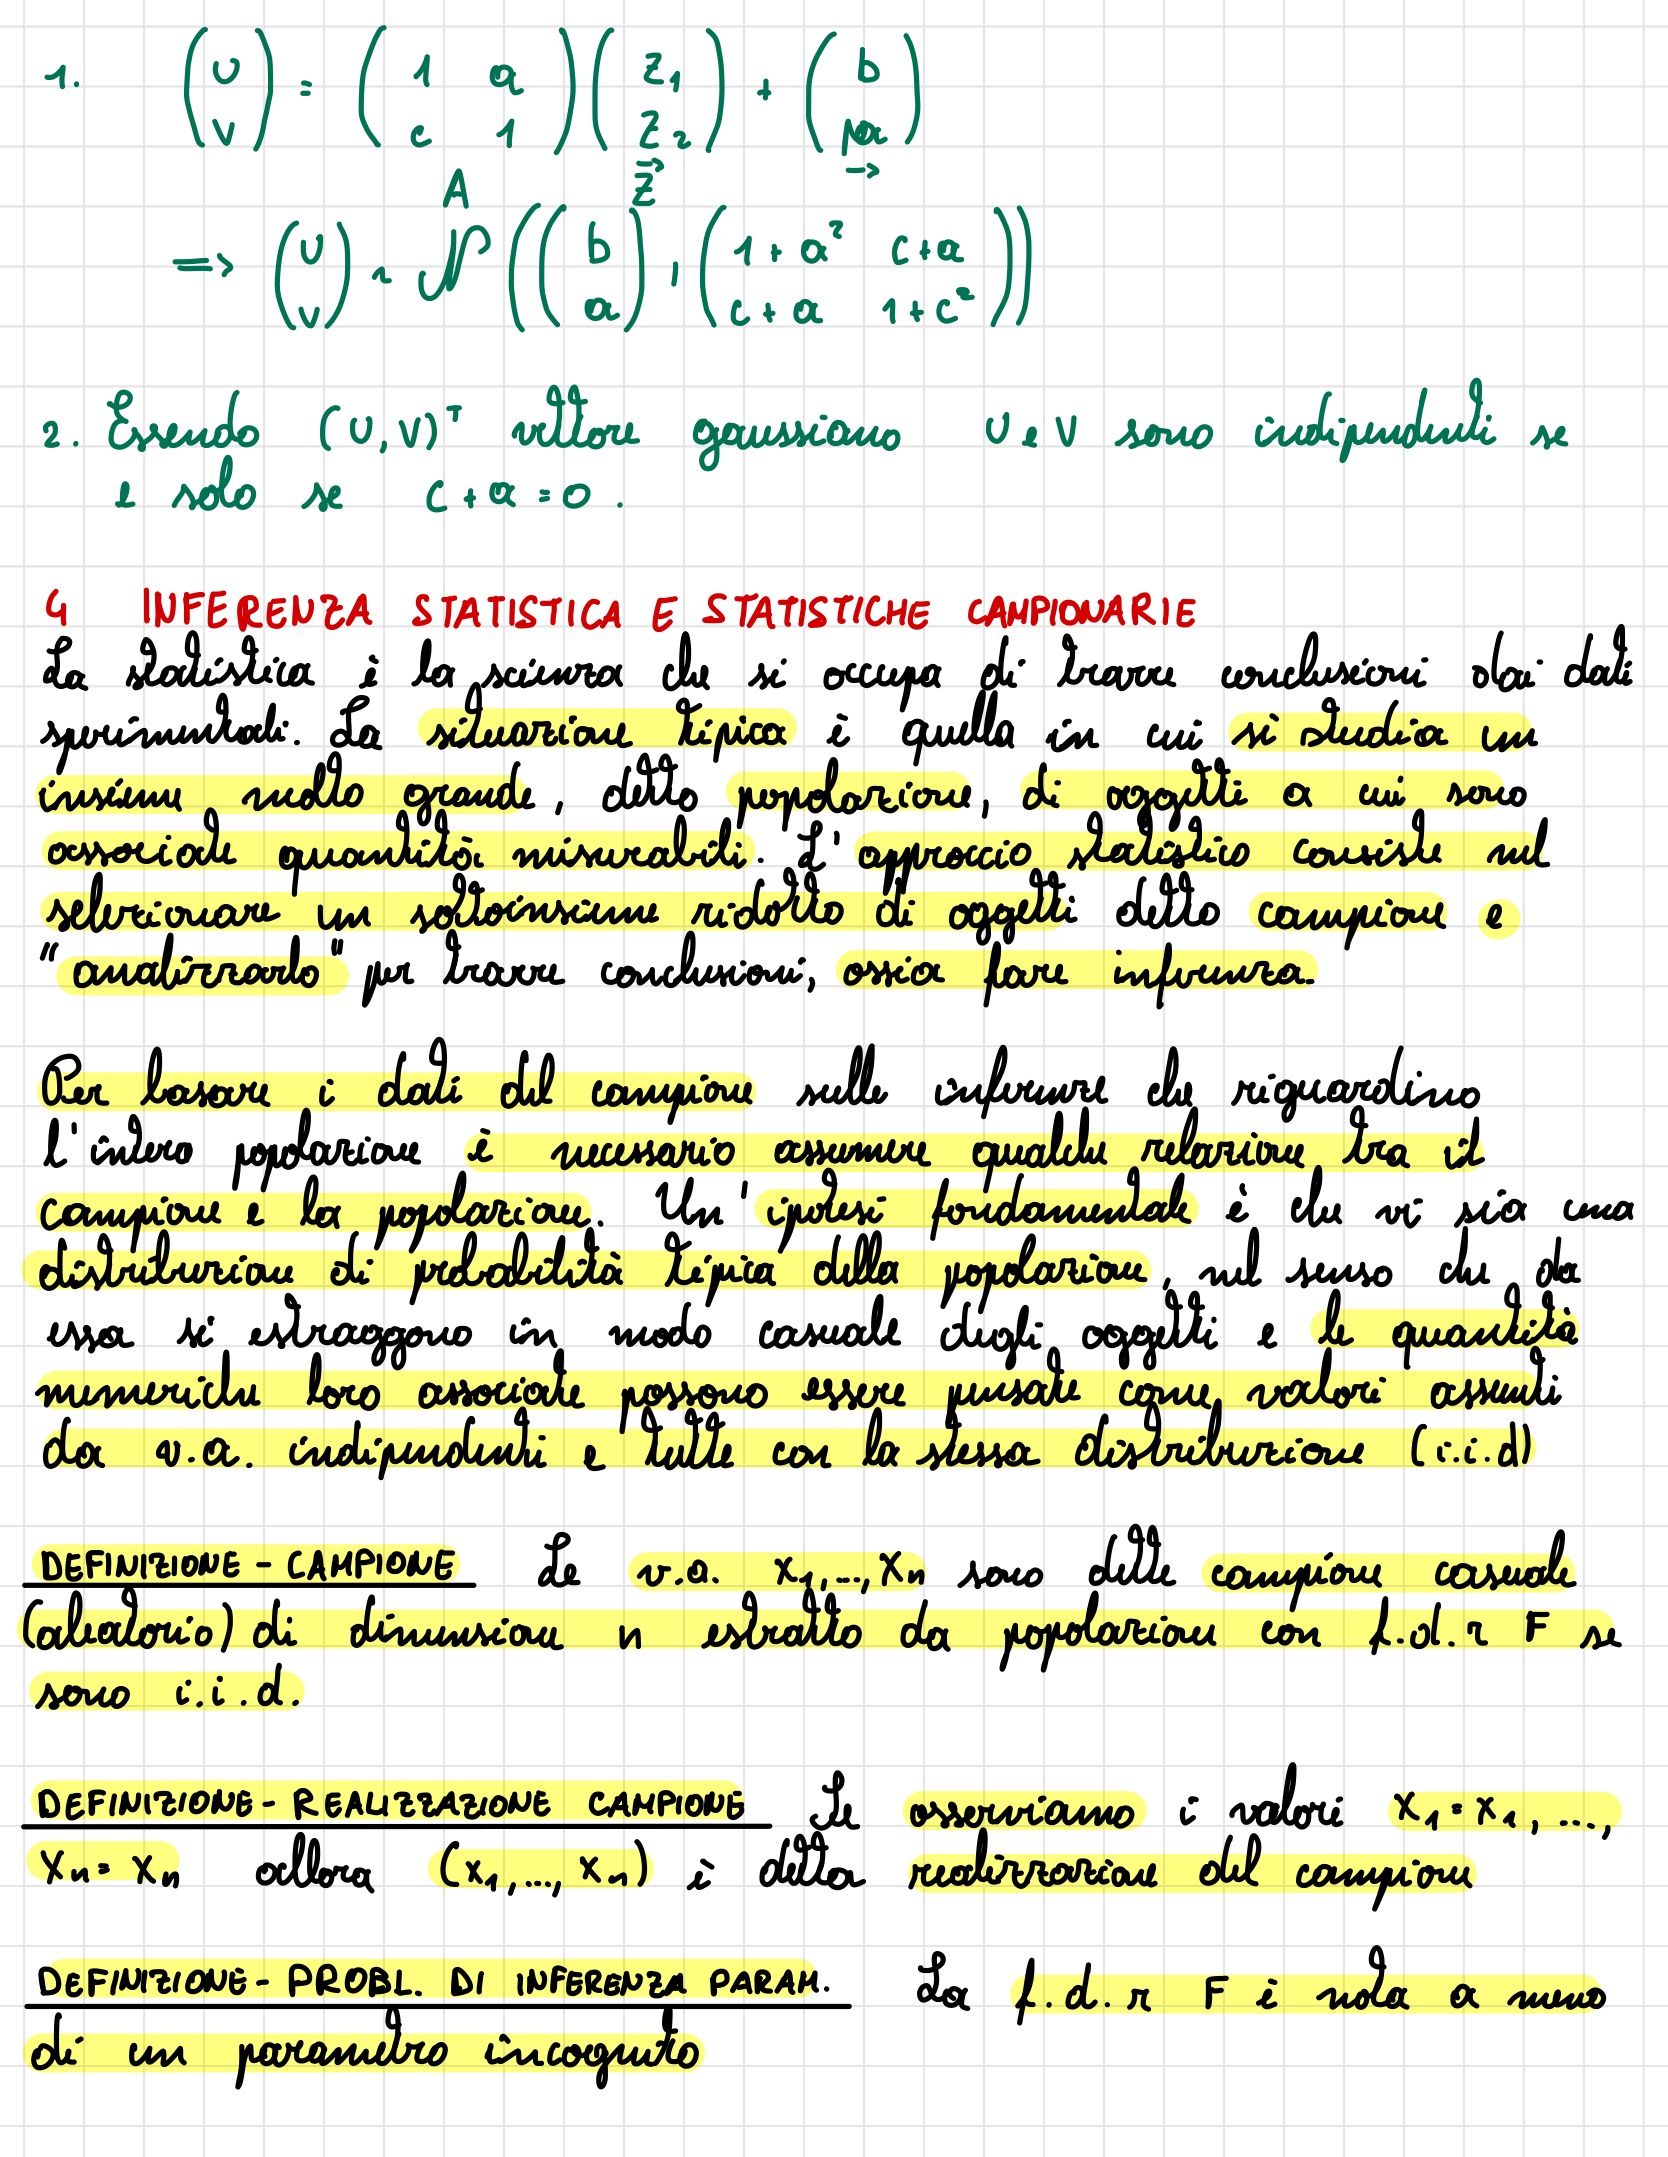 1. (U V) = (1 a c 1) (Z₁ Z₂) + (b a)
A Z⃗ →
=> (U V) ~ N((b a), (1+a² c+a c+a 1+c²))
2. Essendo (U,V)ᵀ vettore gaussiano U e V sono indipendenti se
e solo se c+a=0.
4 INFERENZA STATISTICA E STATISTICHE CAMPIONARIE
La statistica è la scienza che si occupa di trarre conclusioni dai dati
sperimentali. La situazione tipica è quella in cui si studia un
insieme molto grande, detto popolazione, di oggetti a cui sono
associate quantità misurabili. L'approccio statistico consiste nel
selezionare un sottoinsieme ridotto di oggetti detto campione e
"analizzarlo" per trarre conclusioni, ossia fare inferenza.
Per basare i dati del campione sulle inferenze che riguardino
l'intera popolazione è necessario assumere qualche relazione tra il
campione e la popolazione. Un'ipotesi fondamentale è che vi sia una
distribuzione di probabilità tipica della popolazione, nel senso che da
essa si estraggono in modo casuale degli oggetti e le quantità
numeriche loro associate possono essere pensate come valori assunti
da v.a. indipendenti e tutte con la stessa distribuzione (i.i.d)
DEFINIZIONE - CAMPIONE Le v.a. X₁,...,Xn sono dette campione casuale
(aleatorio) di dimensione n estratto da popolazione con f.d.r F se
sono i.i.d.
DEFINIZIONE - REALIZZAZIONE CAMPIONE Se osserviamo i valori X₁=x₁, ...,
Xn=xn allora (x₁,...,xn) è detta realizzazione del campione
DEFINIZIONE - PROBL. DI INFERENZA PARAM. La f.d.r F è nota a meno
di un parametro incognito